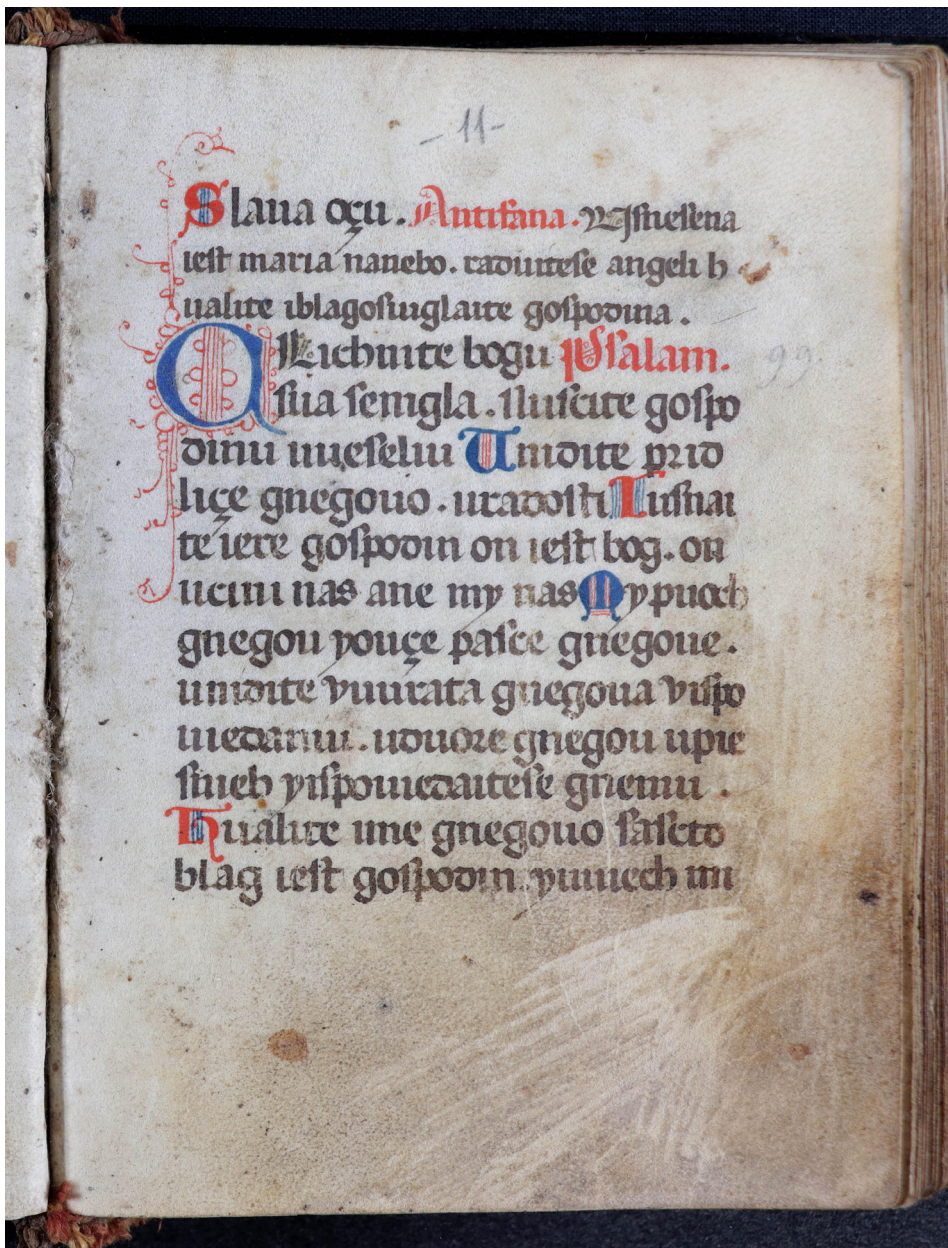 - 11 -
Slaua oçu. Antifana. Visnesena
iest maria nanebo. raduitese angeli h
ualite iblagosuiglaite gospodina.
Klichnite bogu Psalam.
Osua semgla. sluscite gospo
dinu uueseliu Unidite prid
liçe gnegouo. uradosti Iusnai
te iere gospodin on iest bog. on
ucini nas ane my nas My puoch
gnegou youçe pasce gnegoue.
unidite yuurata gnegoua yispo
uiedaniu. uduore gnegou upie
snieh yispouiedaitese gnemu.
Hualite ime gnegouo sascto
blag iest gospodin. yuuiech mi
99.